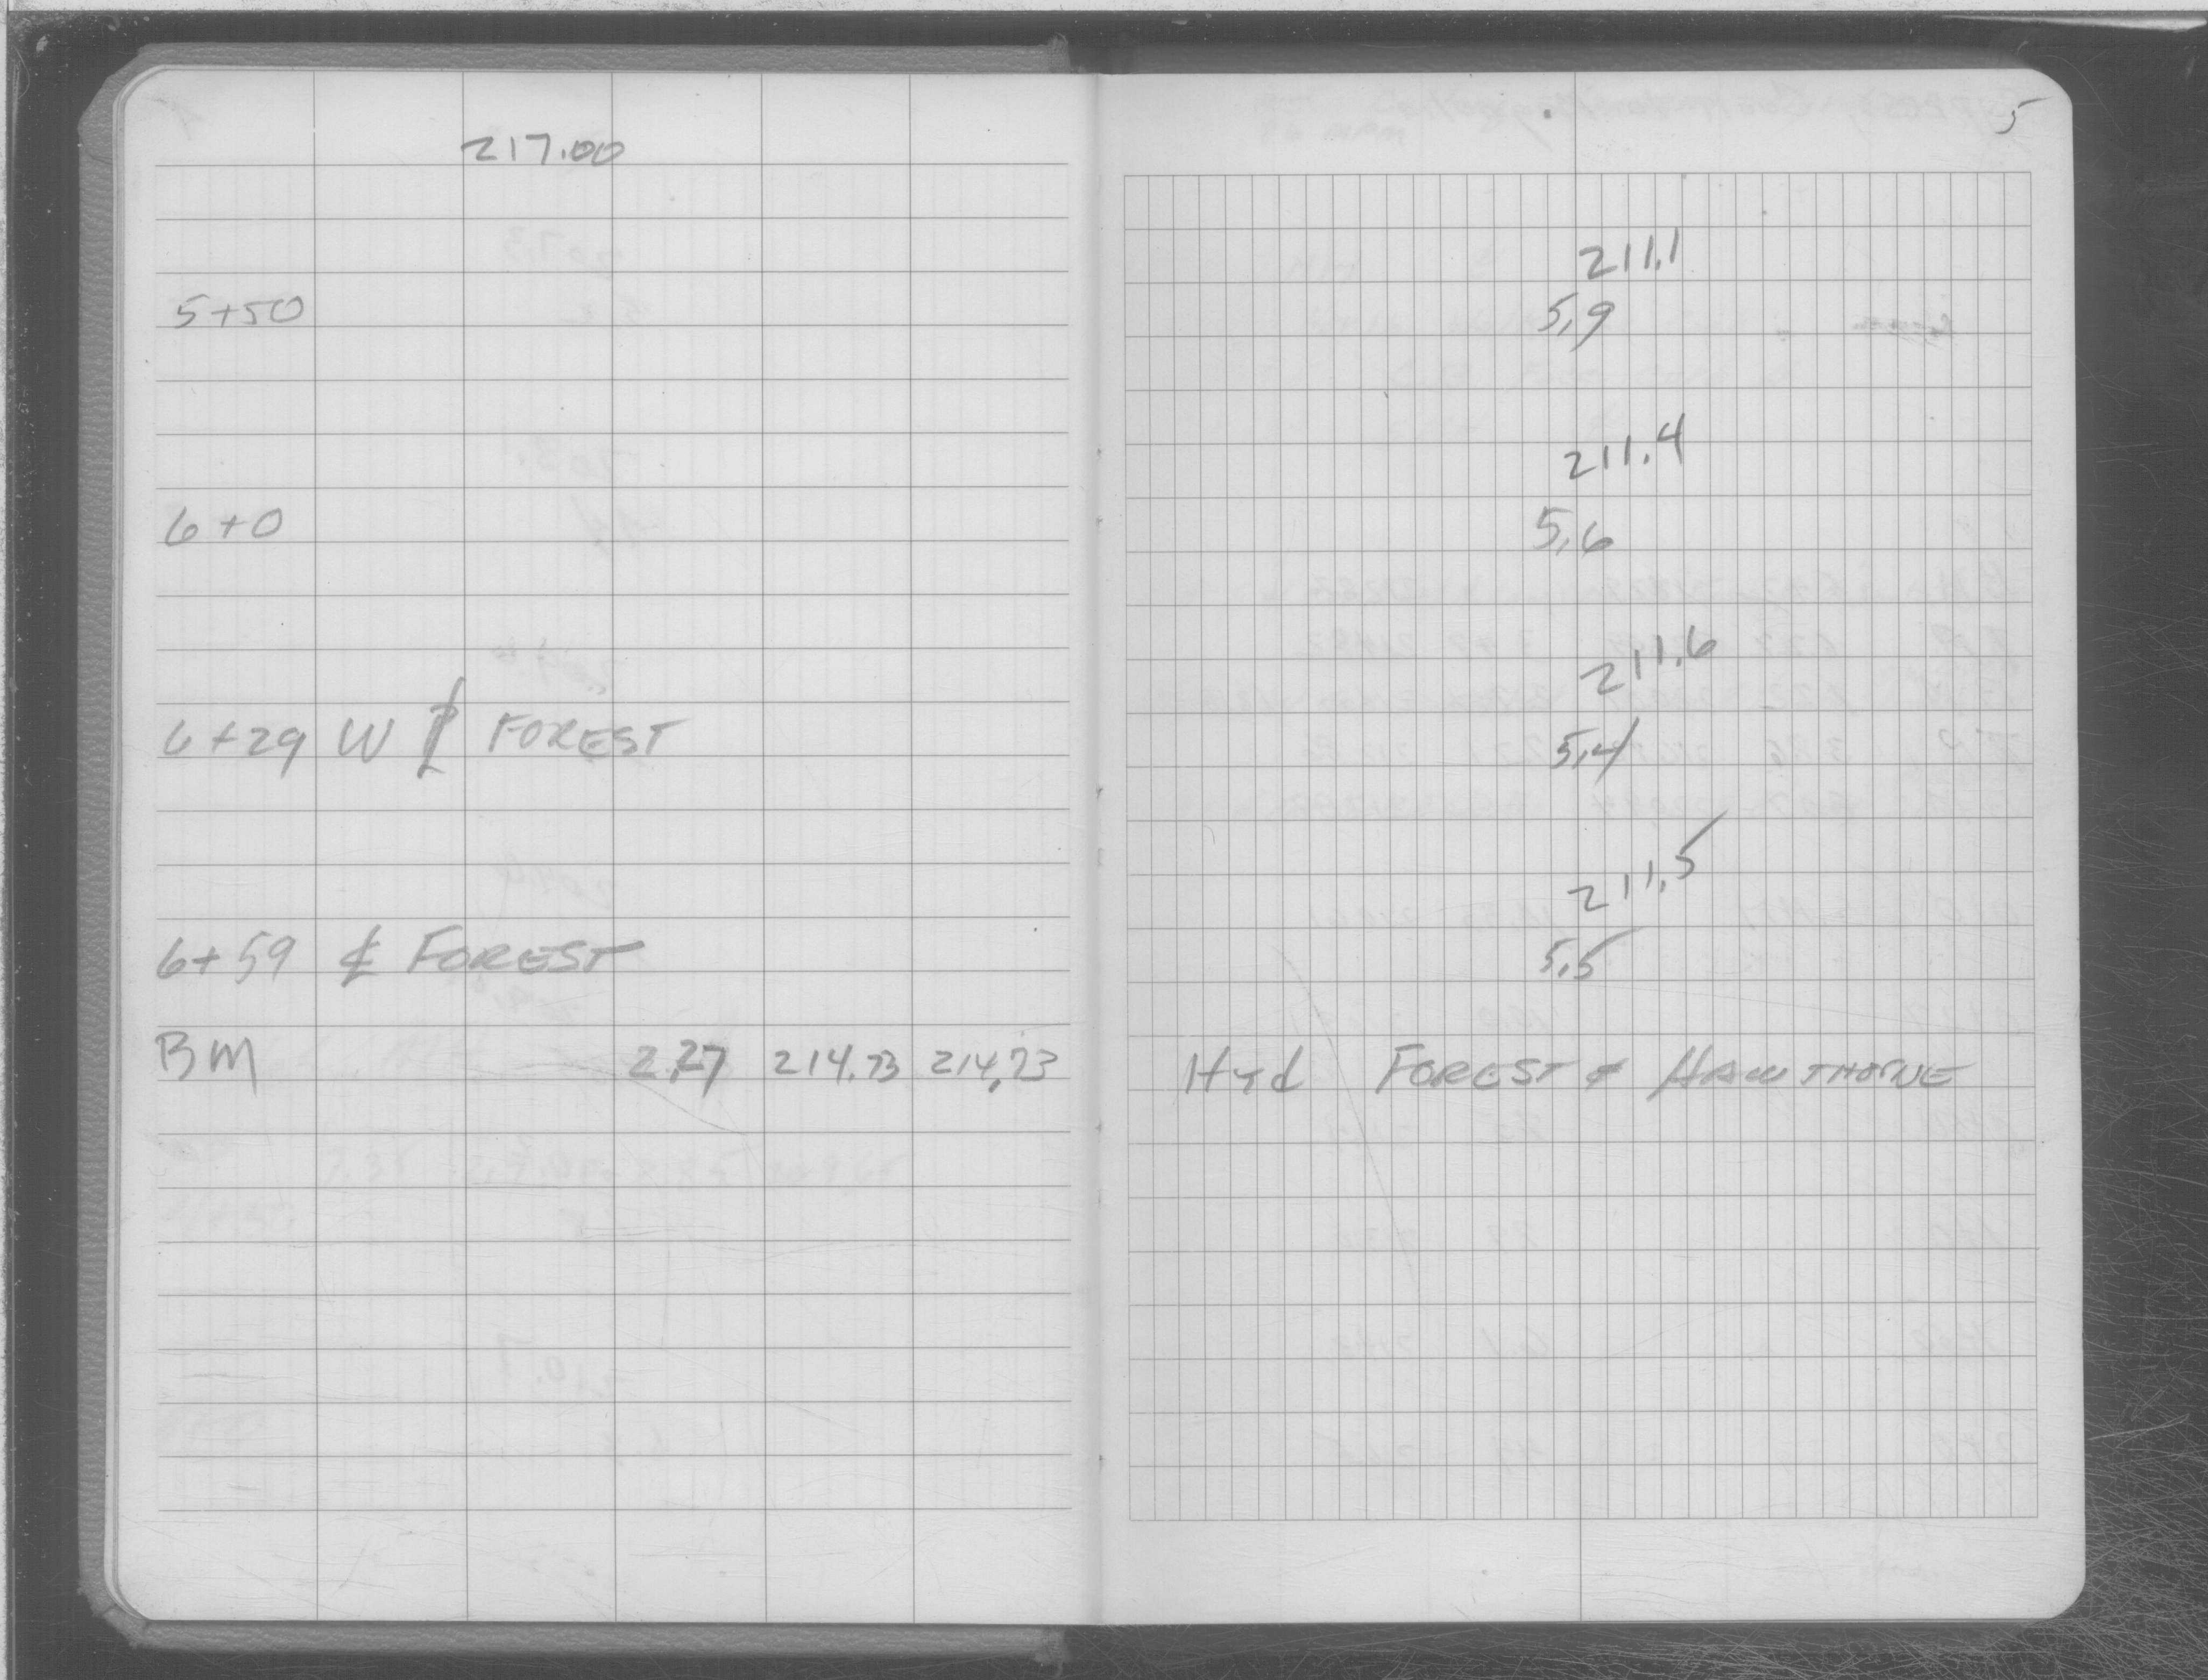 5
217.00
211.1
5+50 5.9
211.4
6+0 5.6
211.6
6+29 W ⅊ FOREST 5.4
211.5
6+59 ℄ FOREST 5.5
BM 2.27 214.73 214.73 Hyd FOREST & HAWTHORNE